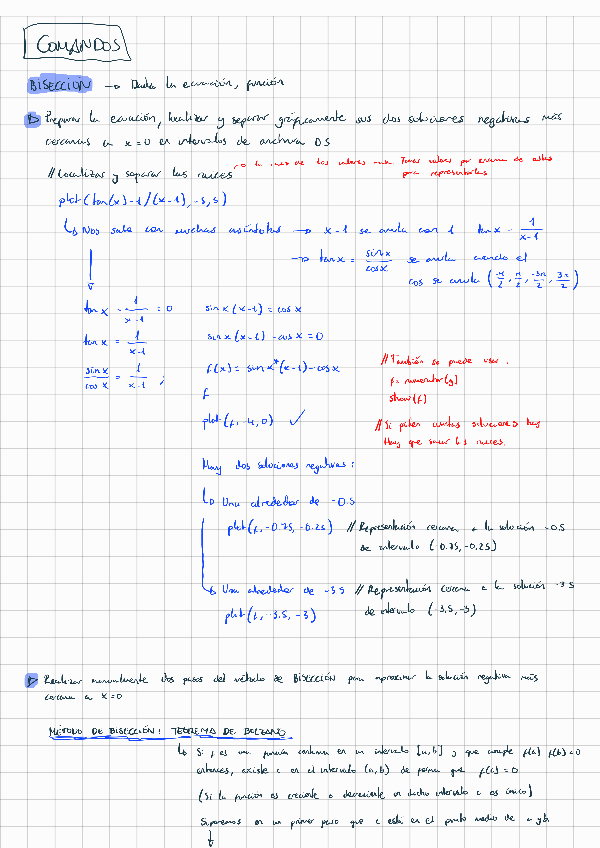 COMANDOS
BISECCION → Dada la ecuación, función
Preparar la ecuación, localizar y separar gráficamente sus dos soluciones negativas más
cercanas a x=0 en intervalos de anchura 0.5
// Localizar y separar las raíces
→ de los valores Tomar valores por encima de estos
para representarlas
plot(tan(x)-1/(x-1),-5,5)
↳ Nos sale con muchas asíntotas → x-1 se anula con 1 tan x - 1/(x-1)
→ tan x = sin x/cos x se anula cuando el
cos se anula (-π/2, π/2, -3π/2, 3π/2)
tan x - 1/(x-1) = 0 sin x (x-1) = cos x
tan x = 1/(x-1) sin x (x-1) - cos x = 0
sin x/cos x = 1/(x-1) ; f(x) = sin x*(x-1)-cos x
// También se puede usar.
f = numerator(g)
f
show(f)
plot(f,-4,0) ✓
// Si piden cuántas soluciones hay
Hay que sacar las raíces.
Hay dos soluciones negativas:
↳ Una alrededor de -0.5
plot(f,-0.75,-0.25) // Representación cercana a la solución -0.5
de intervalo (-0.75,-0.25)
↳ Una alrededor de -3.5 // Representación cercana a la solución -3.5
plot(f,-3.5,-3) de intervalo (-3.5,-3)
Realizar manualmente dos pasos del método de BISECCIÓN para aproximar la solución negativa más
cercana a x=0
MÉTODO DE BISECCIÓN: TEOREMA DE BOLZANO
↳ Si f es una función continua en un intervalo [a,b] y que cumple f(a) f(b) < 0
entonces, existe c en el intervalo (a,b) de forma que f(c) = 0
(Si la función es creciente o decreciente en dicho intervalo c es único)
Suponemos en un primer paso que c está en el punto medio de a y b
↓